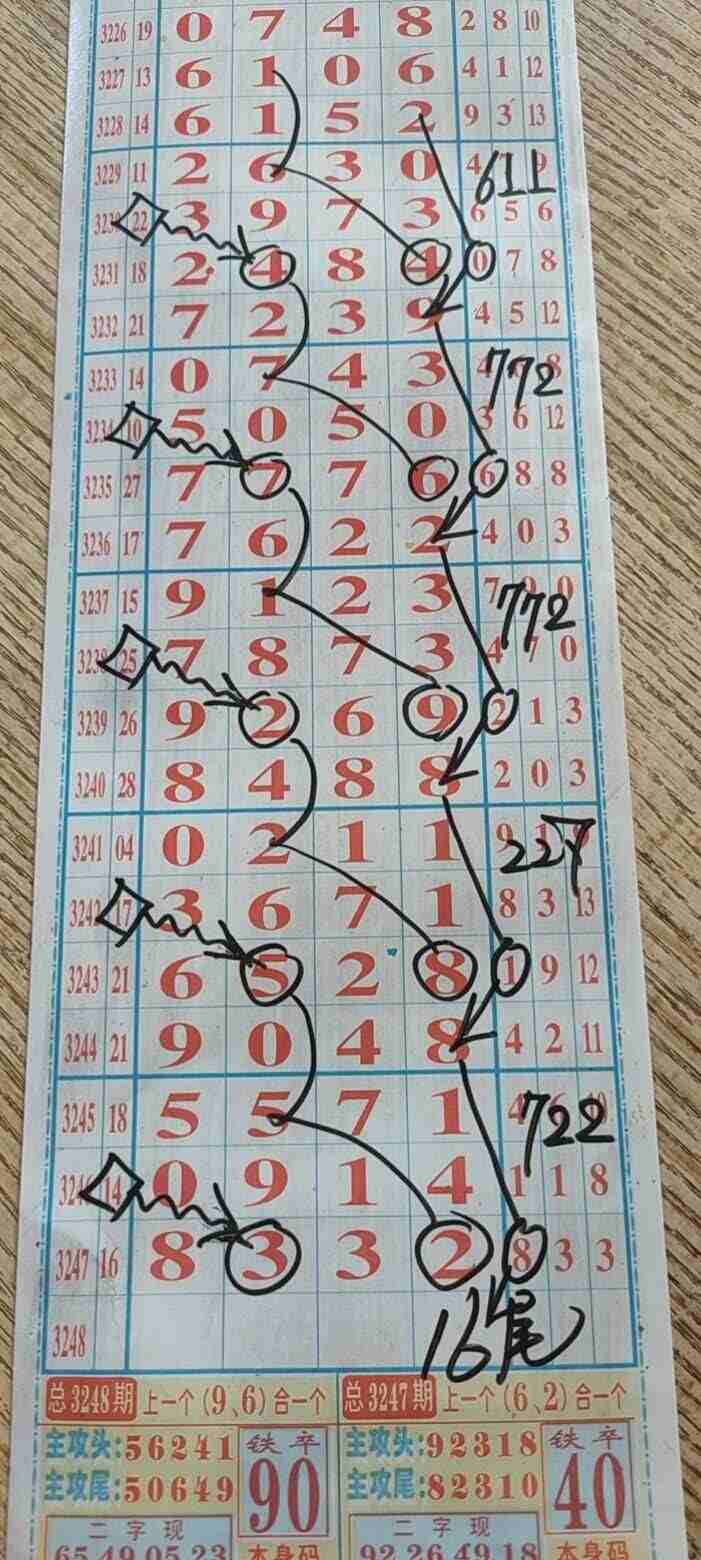 3226 19 0 7 4 8 2 8 10
3227 13 6 1 0 6 4 1 12
3228 14 6 1 5 2 9 3 13
3229 11 2 6 3 0 4 9
611
3230 22 3 9 7 3 6 5 6
3231 18 2 4 8 4 0 7 8
3232 21 7 2 3 9 4 5 12
3233 14 0 7 4 3 8
772
3234 10 5 0 5 0 3 6 12
3235 27 7 7 7 6 6 8 8
3236 17 7 6 2 2 4 0 3
3237 15 9 1 2 3 7 0
772
3238 25 7 8 7 3 4 7 0
3239 26 9 2 6 9 2 1 3
3240 28 8 4 8 8 2 0 3
3241 04 0 2 1 1 9
227
3242 17 3 6 7 1 8 3 13
3243 21 6 5 2 8 1 9 12
3244 21 9 0 4 8 4 2 11
3245 18 5 5 7 1 4
722
3246 14 0 9 1 4 1 1 8
3247 16 8 3 3 2 8 3 3
3248
16尾
总3248期 上一个(9、6)合一个 总3247期 上一个(6、2)合一个
主攻头:56241 铁卒 主攻头:92318 铁卒
主攻尾:50649 90 主攻尾:82310 40
二字现 本身码 二字现 本身码
65 49 05 23 92 26 49 18